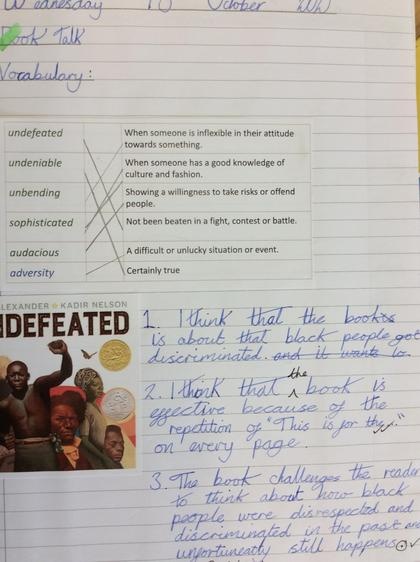 Wednesday 10 October
Book Talk
Vocabulary:
undefeated
When someone is inflexible in their attitude
towards something.
undeniable
When someone has a good knowledge of
culture and fashion.
unbending
Showing a willingness to take risks or offend
people.
sophisticated
Not been beaten in a fight, contest or battle.
audacious
A difficult or unlucky situation or event.
adversity
Certainly true
LEXANDER KADIR NELSON
NDEFEATED
1. I think that the book is
is about that black people got
discriminated. and it wants to
2. I think that the book is
effective because of the
repetition of "This is for the
on every page.
3. The book challenges the reader
to think about how black
people were disrespected and
discriminated in the past and
unfortuneatly still happens.